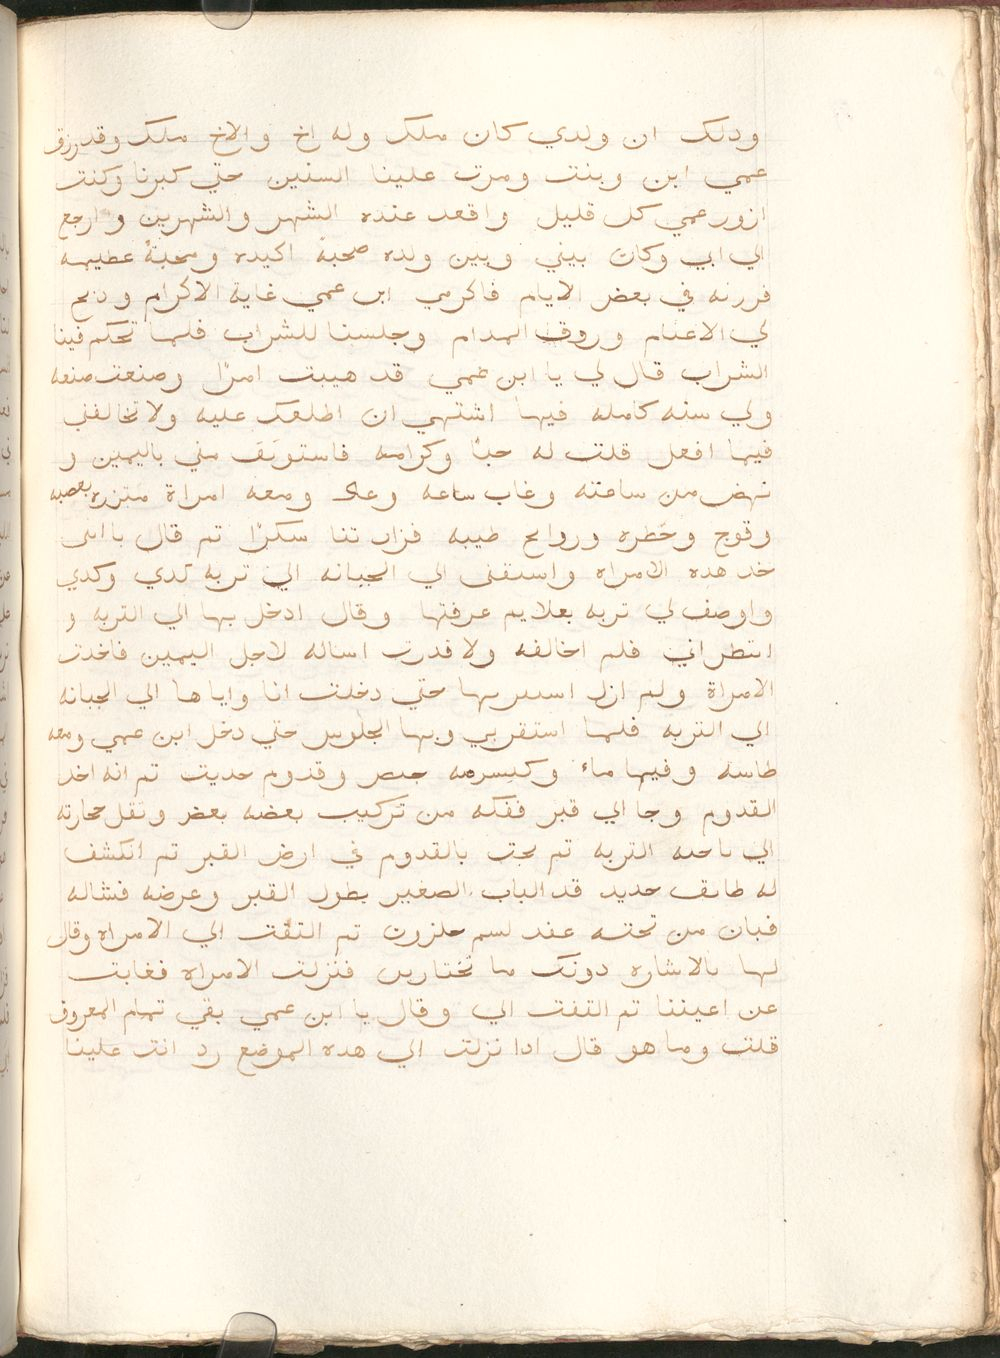 ودلك ان ولدي كان ملك وله اخ والاخ ملك وقد رزق
عمي ابن وبنت ومرت علينا السنين حتي كبرنا وكنت
ازور عمي كل قليل واقعد عنده الشهر والشهرين وارجع
الي ابي وكان بيني وبين ولده صحبةً اكيده ومحبةً عطيمه
فزرته في بعض الايام فاكرمي ابن عمي غاية الاكرام ودبح
لي الاغنام وروق المدام وجلسنا للشراب فلما تحكم فينا
الشراب قال لي يا ابن عمي قد هيبت امرًا وصنعت صنعه
ولي سنه كامله فيها اشتهي ان اطلعك عليه ولا تخالفني
فيما افعل قلت له حبًا وكرامه فاستوثق مني باليمين و
نهض من ساعته وغاب ساعه وعاد ومعه امراة متزره بعصبه
وقوج وخطره وروايح طيبه فزادتنا سكرًا تم قال يا ابني
خد هده الامراه واسبقني الي الجبانه الي تربه كدي وكدي
واوصف لي تربه بعلايم عرفتها وقال ادخل بها الي التربه و
انتطراني فلم اخالفه ولا قدرت اساله لاجل اليمين فاخدت
الامراة ولم ازل اسير بها حتي دخلت انا واياها الي الجبانه
الي التربه فلما استقر بي وبها الجلوس حتي دخل ابن عمي ومعه
طاسه وفيها ماء وكيسرمه جبص وقدوم حديت تم انه اخد
القدوم وجا الي قبر ففكه من تركيب بعضه بعض ونقل حجارته
الي ناحيه التربه تم بحت بالقدوم في ارض القبر تم انكشف
له طابق حديد قد الباب الصغير بطول القبر وعرضه فشاله
فبان من تحته عقد لسم حلزون تم التفت الي الامراه وقال
لها بالاشاره دونك ما تختارين فنزلت الامراه فغابت
عن اعيننا تم التفت الي وقال يا ابن عمي بقي تمام المعروف
قلت وما هو قال ادا نزلت الي هده الموضع رد انت علينا